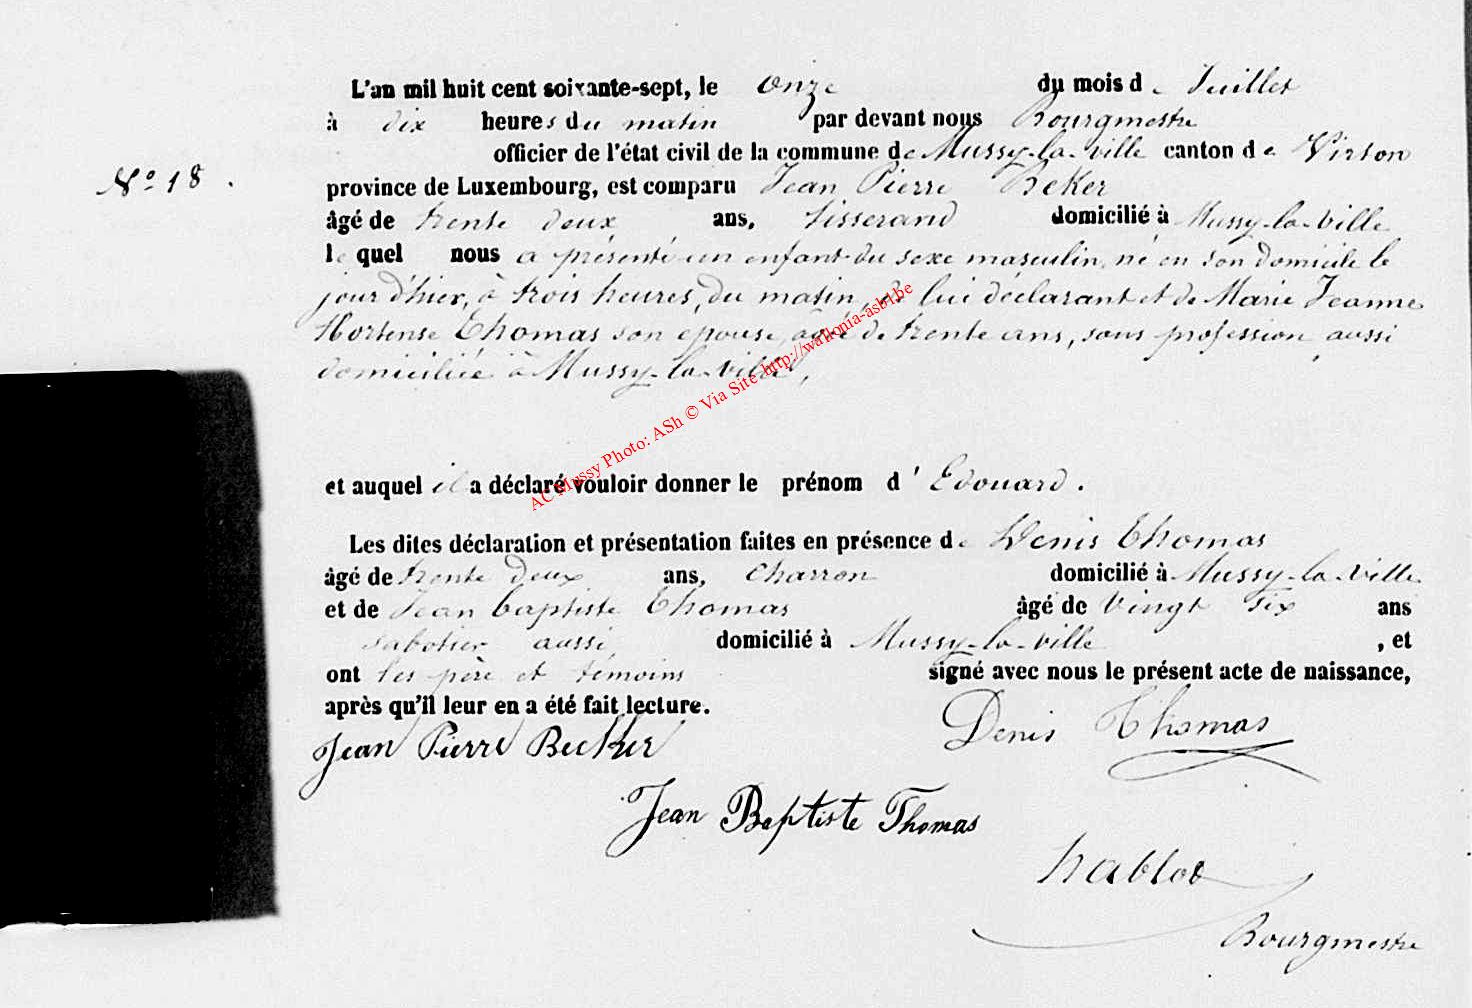 L'an mil huit cent soixante-sept, le onze du mois de Juillet
à dix heures du matin par devant nous Bourgmestre
officier de l'état civil de la commune de Mussy-la-ville canton de Virton
N° 18.
province de Luxembourg, est comparu Jean Pierre Beker
âgé de trente deux ans, tisserand domicilié à Mussy-la-Ville
lequel nous a présenté un enfant du sexe masculin, né en son domicile le
jour d'hier, à trois heures, du matin, de lui déclarant et de Marie Jeanne
Hortense Thomas son épouse, âgée de trente ans, sans profession, aussi
domiciliée à Mussy-la-ville,
et auquel il a déclaré vouloir donner le prénom d'Edouard.
Les dites déclaration et présentation faites en présence de Denis Thomas
âgé de trente deux ans, charron domicilié à Mussy-la-Ville
et de Jean baptiste Thomas âgé de Vingt six ans
sabotier aussi domicilié à Mussy-la-ville, et
ont les père et témoins signé avec nous le présent acte de naissance,
après qu'il leur en a été fait lecture.
Jean Pierre Becker Denis Thomas
Jean Baptiste Thomas
hablot
Bourgmestre
AC Mussy Photo: ASh © Via Site http://wallonia-asbl.be